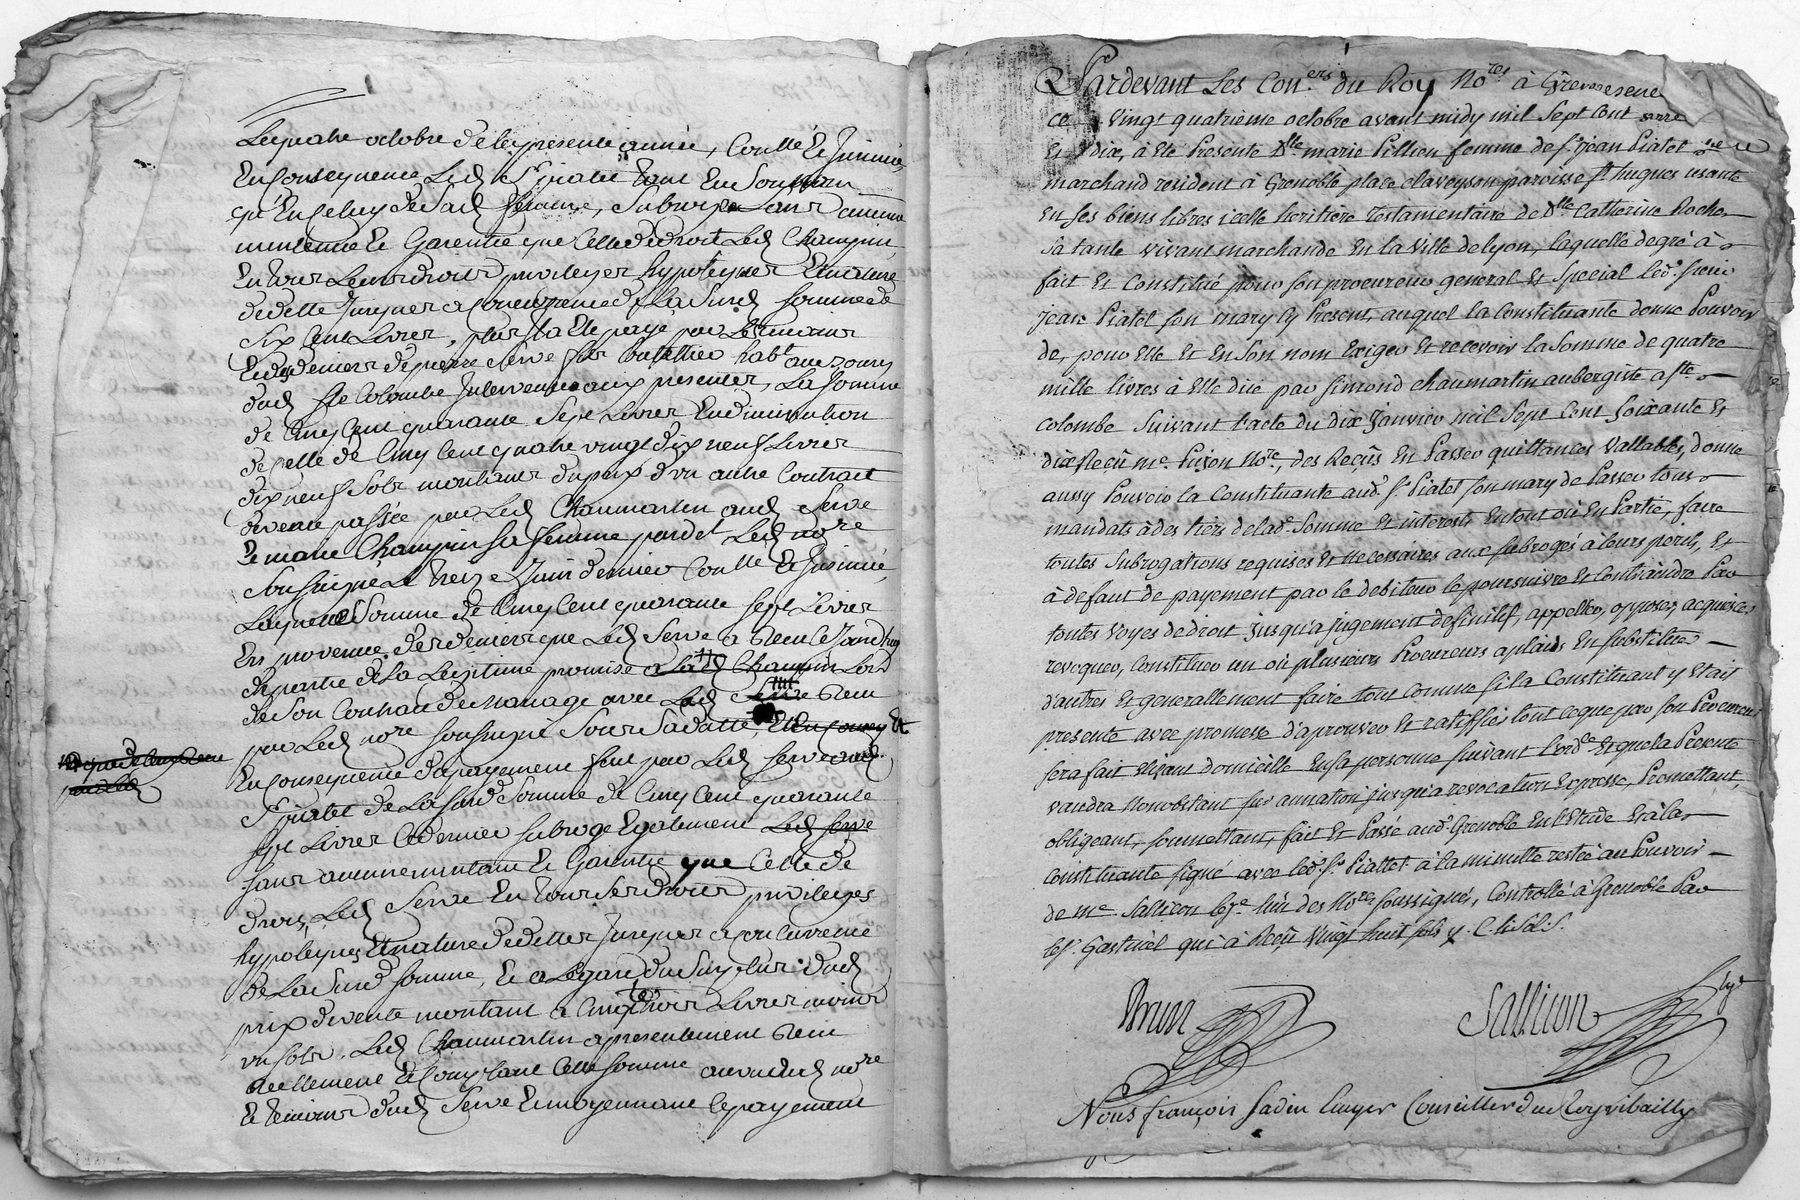 Lequatre octobre de la presente année, Conllé et Insinué,
En consequence Led Sr piatet tant En Son nom
qu'En celuy de Sad femme, Subroge Sans aucune
maintenue Et Garentie que Celle de droit Led Champin
En tous Leurs droits privileges hypoteques Et nature
de dette Jusques a concurrence de La Susd Somme de
Six Cent Livres, plus
Et deniers de pierre Serve fils habt aux
dud Ste Colombe Intervenant aux presentes, La Somme
de Cinq Cent quarante Sept Livres En diminution
de Celle de Cinq Cent quatre vingt dix neuf Livres
dix neuf Sols montant du prix d'un autre Contrait
de vente passée par Led Chaumartin aud Serve
Et marie Champin Sa femme pardet Led nore
Soussigné Le Treize Juin dernier Conllé Et Insinué,
Laquelle Somme de Cinq Cent quarante Sept Livres
Est provenue des deniers que Led Serve a
de partie de La Legitime promise a Champin Lors
de Son Contrait de mariage avec Led Serve Receu
par Led nore Soussigné Sous Sa datte, Et
En Consequence du payement fait par Led Serve aud
Sr piatet de La Susd Somme de Cinq Cent quarante
Sept Livres Ce dernier Subroge Egalement Led Serve
Sans aucune maintenue Et Garentie que Celle de
droit, Led Serve En tous Ses droits privileges
hypoteques Et nature de dettes Jusques a Concurrence
de La Susd Somme, Et a Legard du Surplus dud
prix de vente montant a Cinqte trois Livres moins
un Sols, Led Chaumartin a presentement Receu
Reellement Et Comptant Cette Somme au vû dud nore
Et temoins dud Serve Et moyennant Ce payement
Pardevant Les Coners du Roy Nores à Grenoble
ce Vingt quatrième octobre avant midy mil Sept Cent
Et dix, à Eté Presente Dlle marie Pillion femme de Sr Jean Piatet
marchand resident à Grenoble place claveyson paroisse St hugues usante
En ses biens libres icelle heritière Testamentaire de Dlle Catherine Roche
Sa tante vivant marchande En la Ville de lyon, laquelle de gré à
fait Et Constitué pour Son procureur general Et Special led. sieur
Jean Piatet Son mary Cy Present, auquel la Constituante donne Pouvoir
de, pour Elle Et En Son nom Exiger Et recevoir la Somme de quatre
mille livres à Elle düe par Simond Chaumartin aubergiste a Ste
colombe Suivant l'acte du dix Janvier mil Sept Cent Soixante Et
dix Reçû me. Nore, des Reçûs En Passer quittances Vallables, donne
aussy Pouvoir la Constituante aud. Sr. Piatet Son mary de Passer tous
mandats à des tiers de lad. Somme Et interests En tout où En Partie, faire
toutes Subrogations requises Et necessaires aux Subrogés à leurs perils, Et
à defaut de payement par le debiteur le poursuivre Et Contraindre Par
toutes Voyes de droit Jusqu'a jugement definitif, appeller, opposer, acquiescer
revoquer, Constituer un où plusieurs Procureurs a plaids En Substituer
d'autres Et generallement faire tout Comme si la Constituant y Etait
presente avec promesse d'aprouver Et ratiffier tout ce que par Son Procureur
Sera fait Elisant domicille En Sa personne Suivant l'orde Et que la Presente
vaudra nonobstant Surannation jusqu'a revocation Expresse, Promettant,
obligeant, Soumettant, fait Et Passé aud. Grenoble En l'Etude Et à la
Constituante Signé avec led. Sr. Piattet à la minutte restée au Pouvoir
de me. Sallicon lu'n des Nores Soussignés, Controllé à Grenoble Par
le Sr. Gastinel qui à Reçû Vingt huit Sols
Brun
Sallicon
Nous françois Jadin Ecuyer Conseiller du Roy vibailly